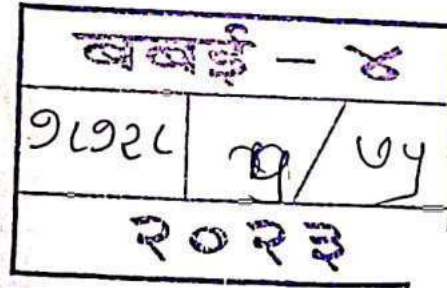 बबई - ४
१८१२८ / ७५
२०२३